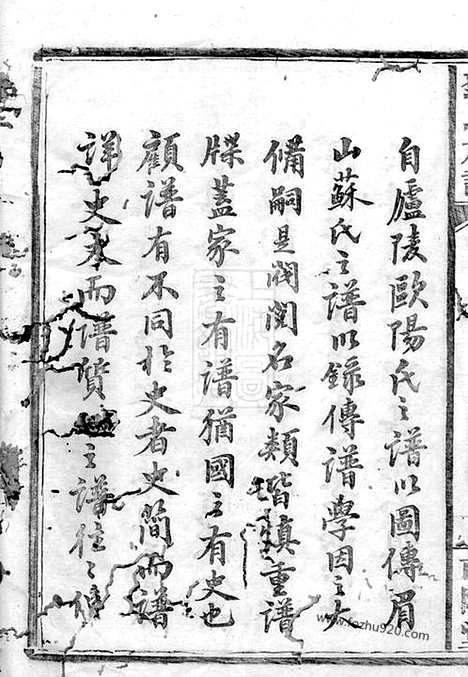 自廬陵歐陽氏之譜以圖傳眉
山蘇氏之譜以錄傳譜學因之大
備嗣是閥閱名家類皆慎重譜
牒蓋家之有譜猶國之有史也
顧譜有不同於史者史簡而譜
詳史 而譜質 之譜往々
www.fozhu920.com